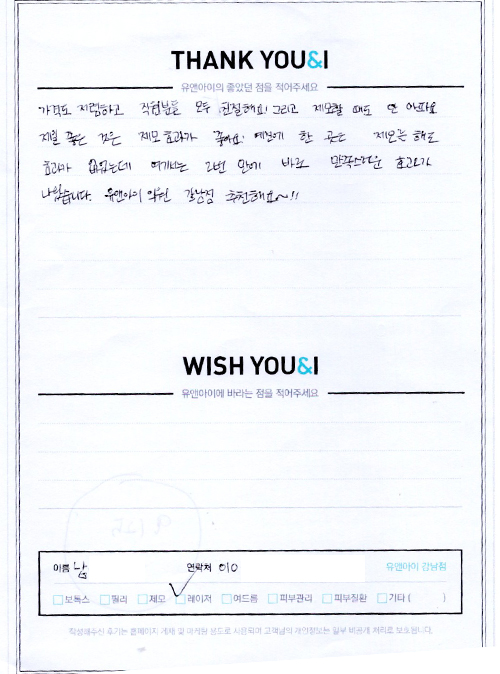 THANK YOU&I
유앤아이의 좋았던 점을 적어주세요
가격도 저렴하고 직원분들 모두 친절해요! 그리고 제모할 때도 안 아파요
제일 좋은 것은 제모 효과가 좋아요. 예전에 한 곳은 제모는 해도
효과가 없었는데 여기서는 2번 만에 바로 만족스러운 효과가
나왔습니다. 유앤아이 의원 강남점 추천해요~!!
WISH YOU&I
유앤아이에 바라는 점을 적어주세요
이름 남 연락처 010 유앤아이 강남점
보톡스 필러 제모 레이저 여드름 피부관리 피부질환 기타 ( )
작성해주신 후기는 홈페이지 게재 및 마케팅 용도로 사용되며 고객님의 개인정보는 일부 비공개 처리로 보호됩니다.